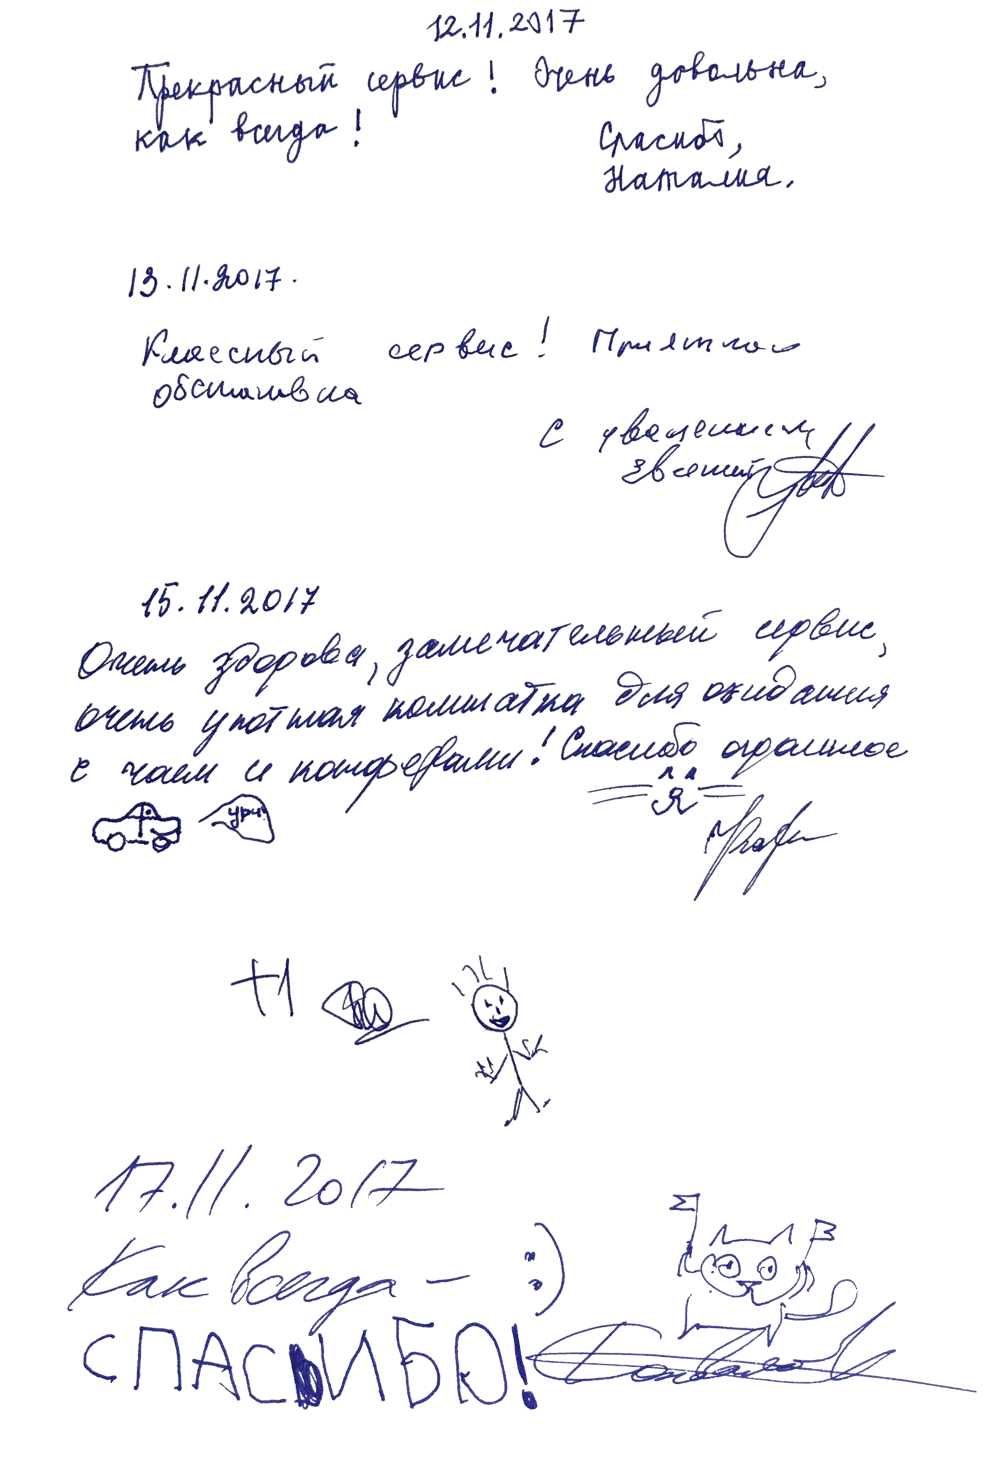 12.11.2017
Прекрасный сервис! Очень довольна,
как всегда!
Спасибо,
Наталия.
13.11.2017.
Классный сервис! Приятная
обстановка
С уважением
Евгений
15.11.2017
Очень здорово, замечательный сервис,
очень уютная комнатка для ожидания
с чаем и конфетами! Спасибо огромное
ура!
Я
+1
17.11.2017
Как всегда – :)
СПАСИБО!